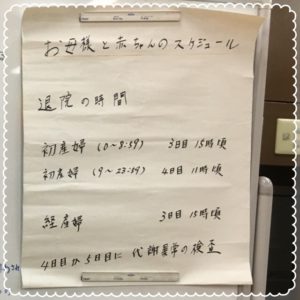 お母様と赤ちゃんのスケジュール
退院の時間
初産婦 (0〜8:59) 3日目 15時頃
初産婦 (9〜23:59) 4日目 11時頃
経産婦 3日目 15時頃
4日目か5日目に 代謝異常の検査